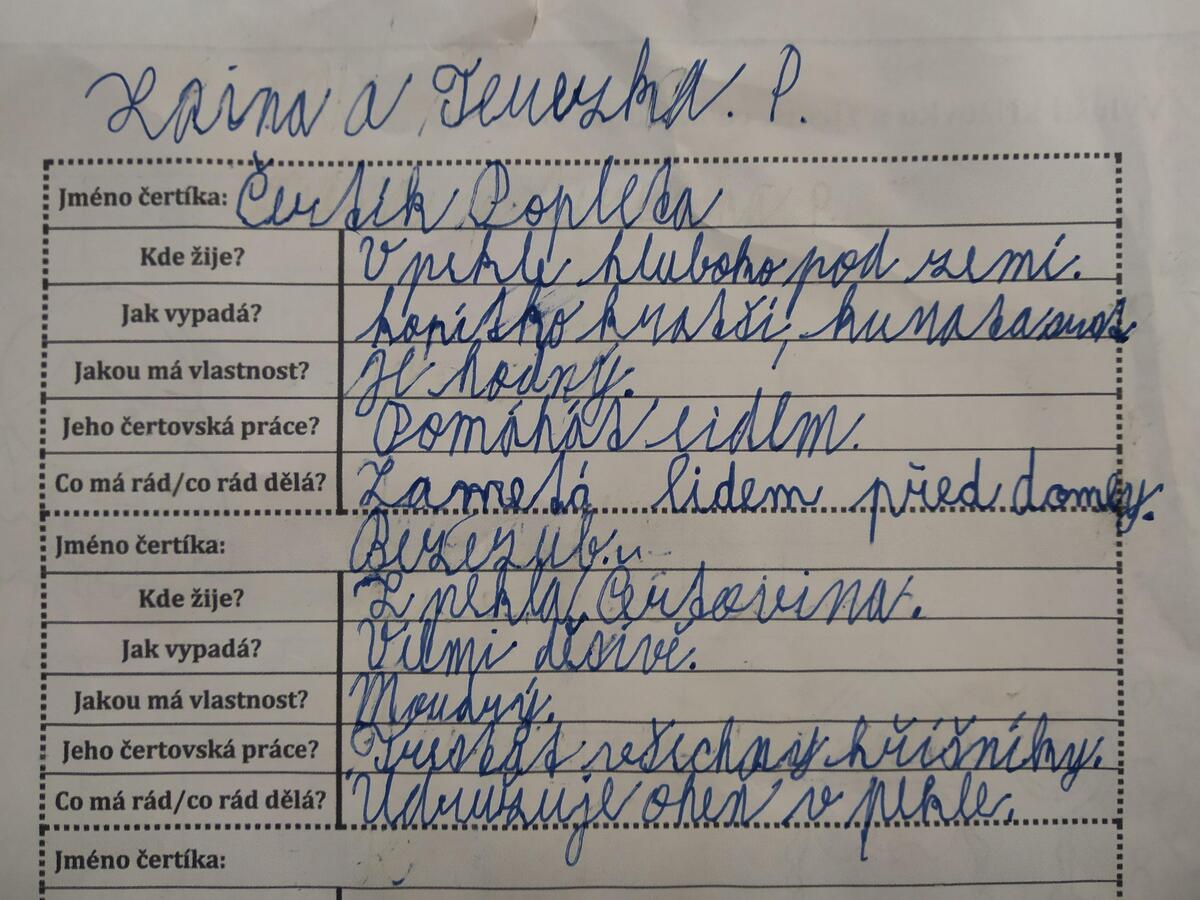 a Terezka. P.
Jméno čertíka: Čertík Popleta
Kde žije? V pekle hluboko pod zemí.
Jak vypadá? kopítko kratší,
Jakou má vlastnost? Je hodný.
Jeho čertovská práce? Pomáhat lidem.
Co má rád/co rád dělá? Zametá lidem před domey.
Jméno čertíka:
Kde žije? Z pekla Čertovina.
Jak vypadá? Velmi děsivě.
Jakou má vlastnost? Moudrý.
Jeho čertovská práce? Trestat všechny hříšníky.
Co má rád/co rád dělá? Udržuje ohen v pekle.
Jméno čertíka: